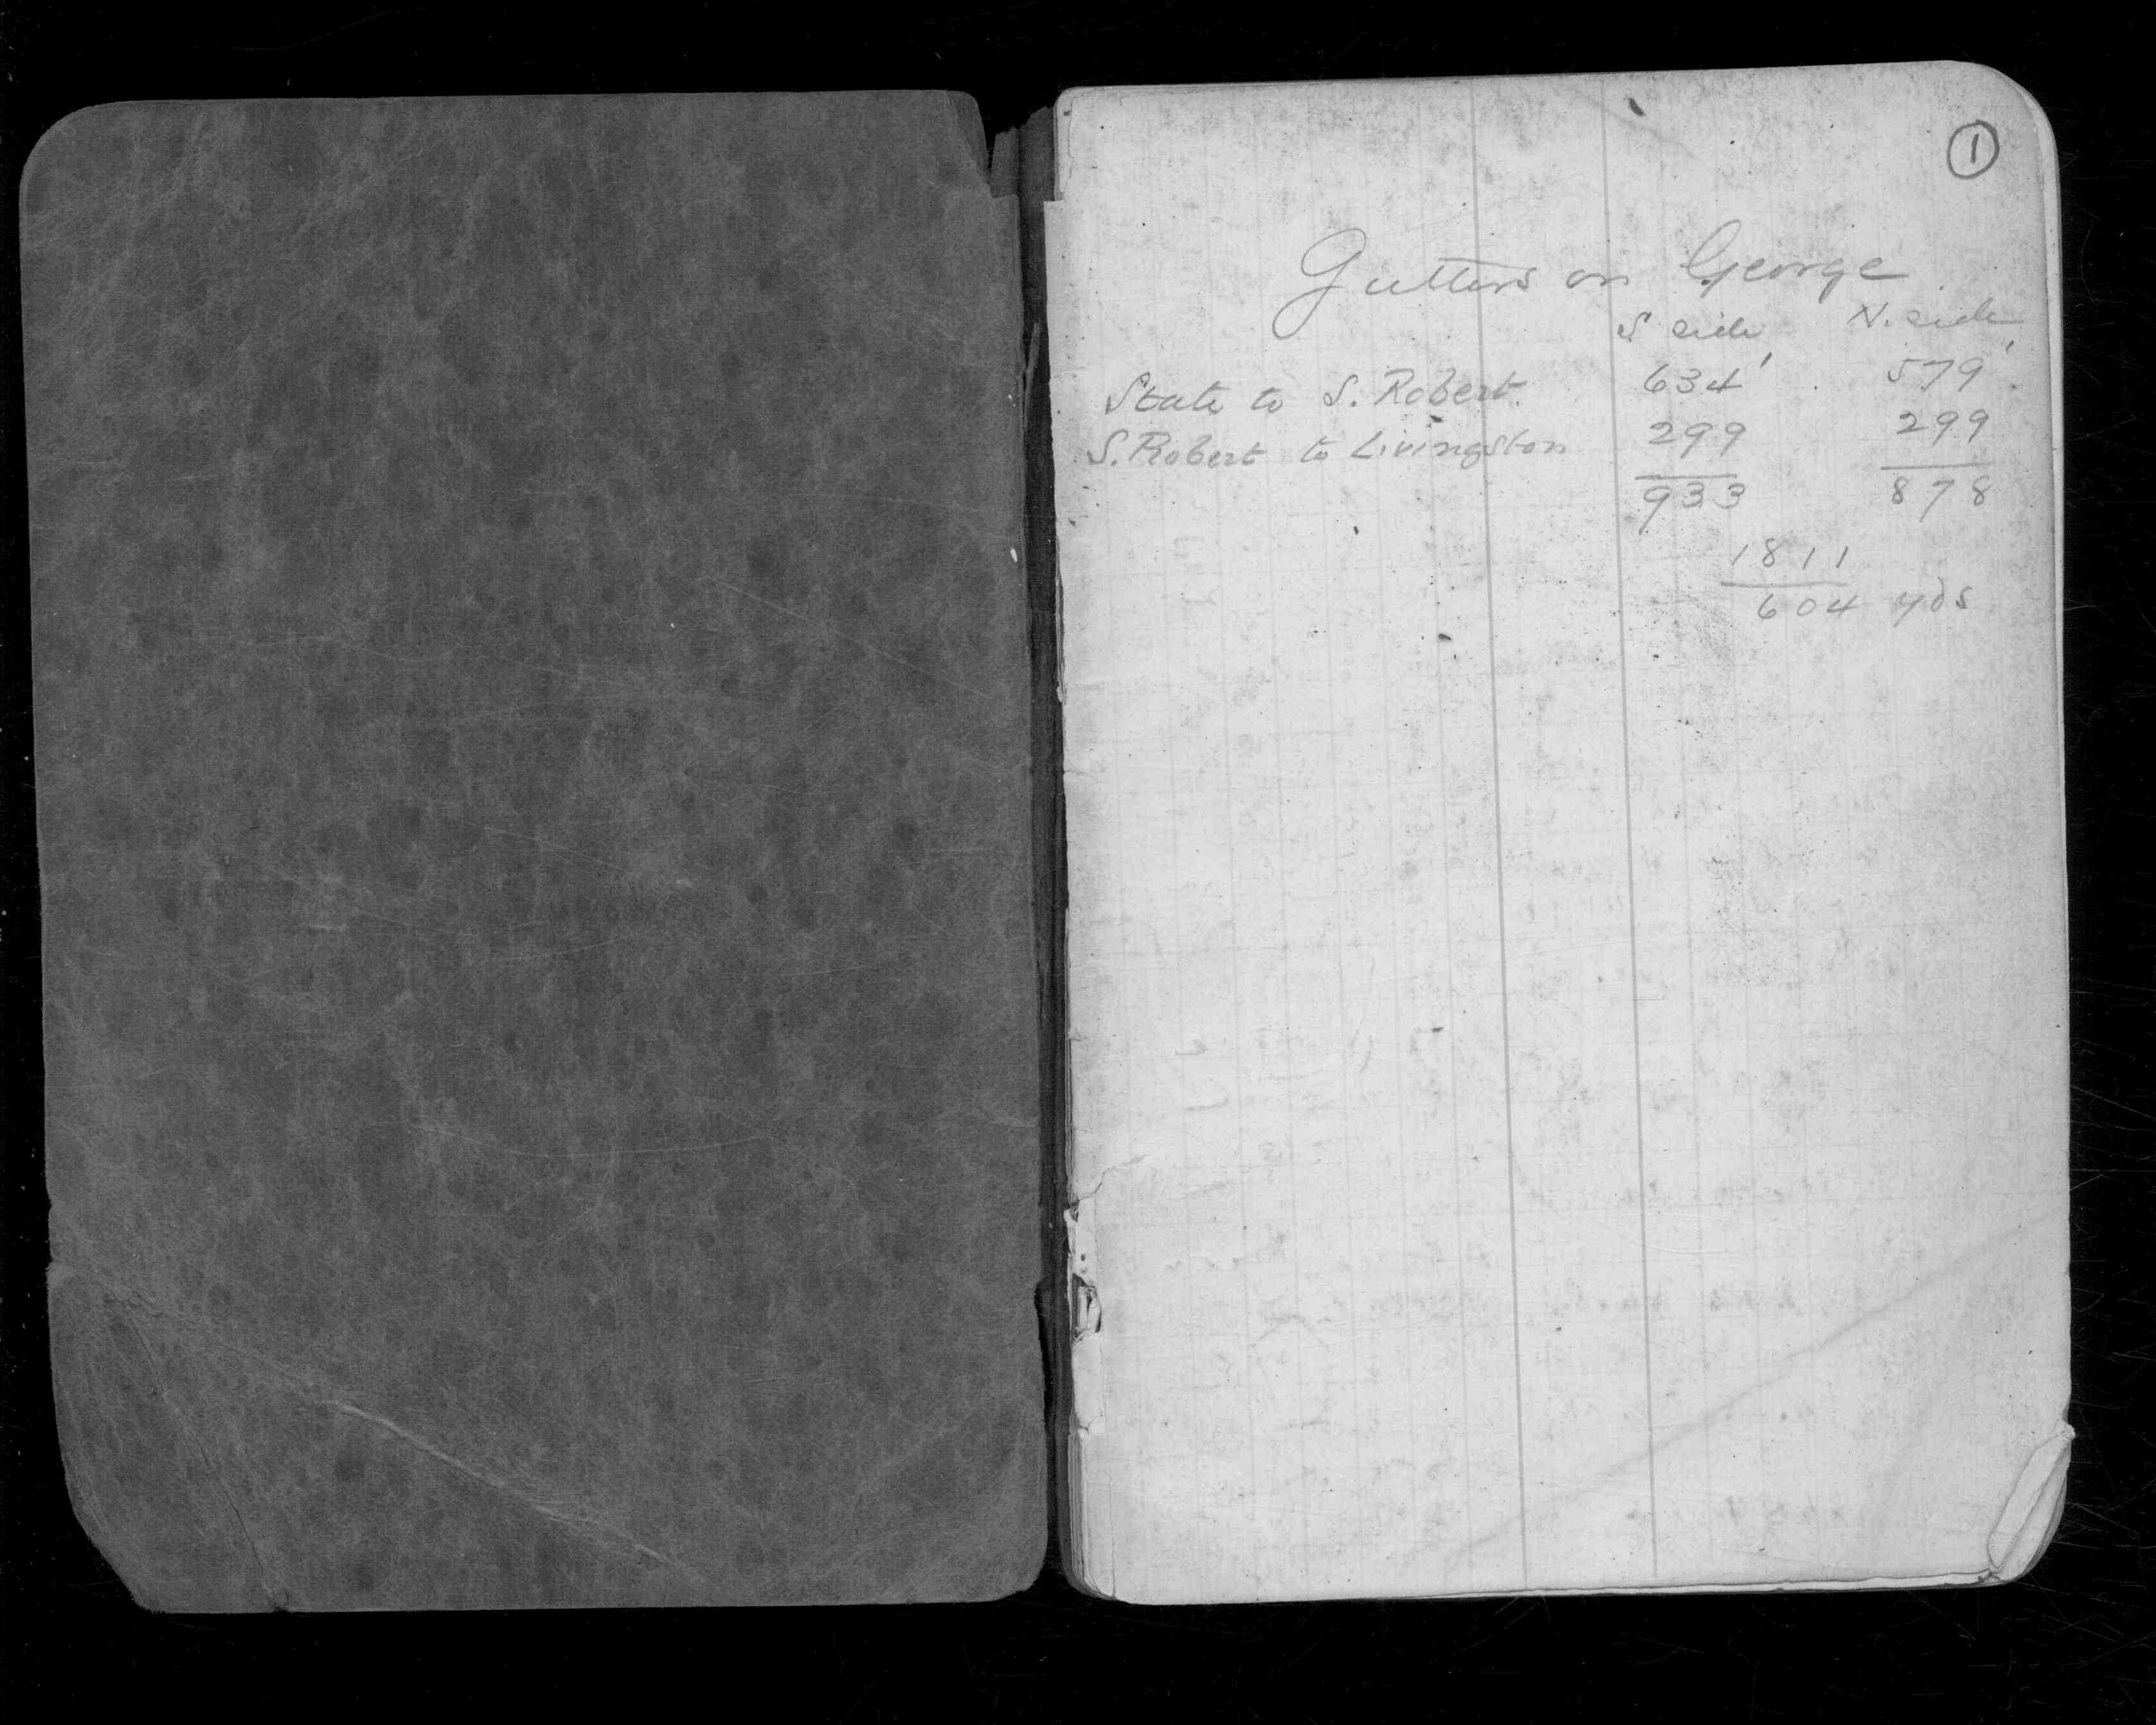 1
Gutters on George
S side N. side
State to S. Robert. 634' 579'
S. Robert to Livingston 299 299
933 878
1811
604 yds